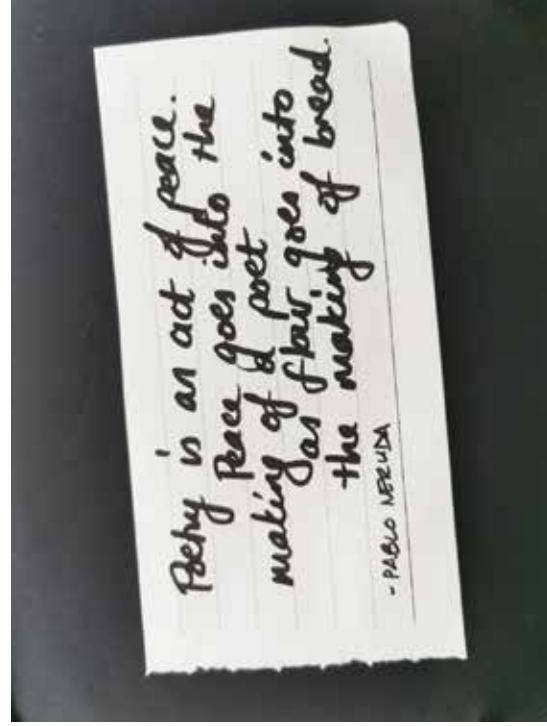 Poetry is an act of peace.
Peace goes into the
making of a poet
as flour goes into
the making of bread.
- PABLO NERUDA